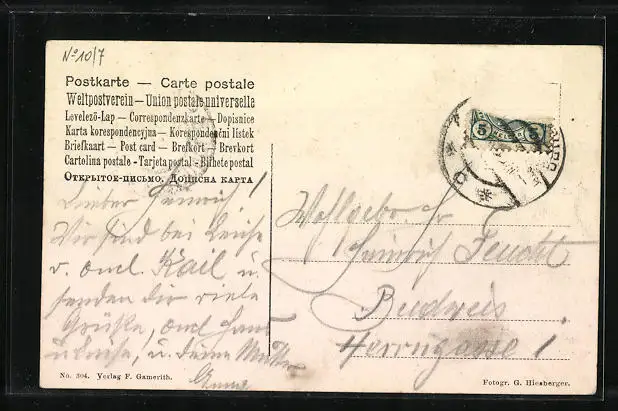 No 10/7
Postkarte — Carte postale
Weltpostverein — Union postale universelle
Levelező-Lap — Correspondenzkarte — Dopisnice
Karta korespondencyjna — Korespondenční lístek
Briefkaart — Post card — Brefkort — Brevkort
Cartolina postale - Tarjeta postal - Bilhete postal
Открытое-письмо. Дописна карта
Lieber Heinrich!
Wir sind bei
v. Onkl. Karl u.
senden dir viele
Grüße, Onkl
u. deine Mutter
Anna
5 5
Wohlgebor. Hr
Heinrich Feucht
Budweis
Herrngasse 1
No. 304. Verlag F. Gamerith.
Fotogr. G. Hiesberger.